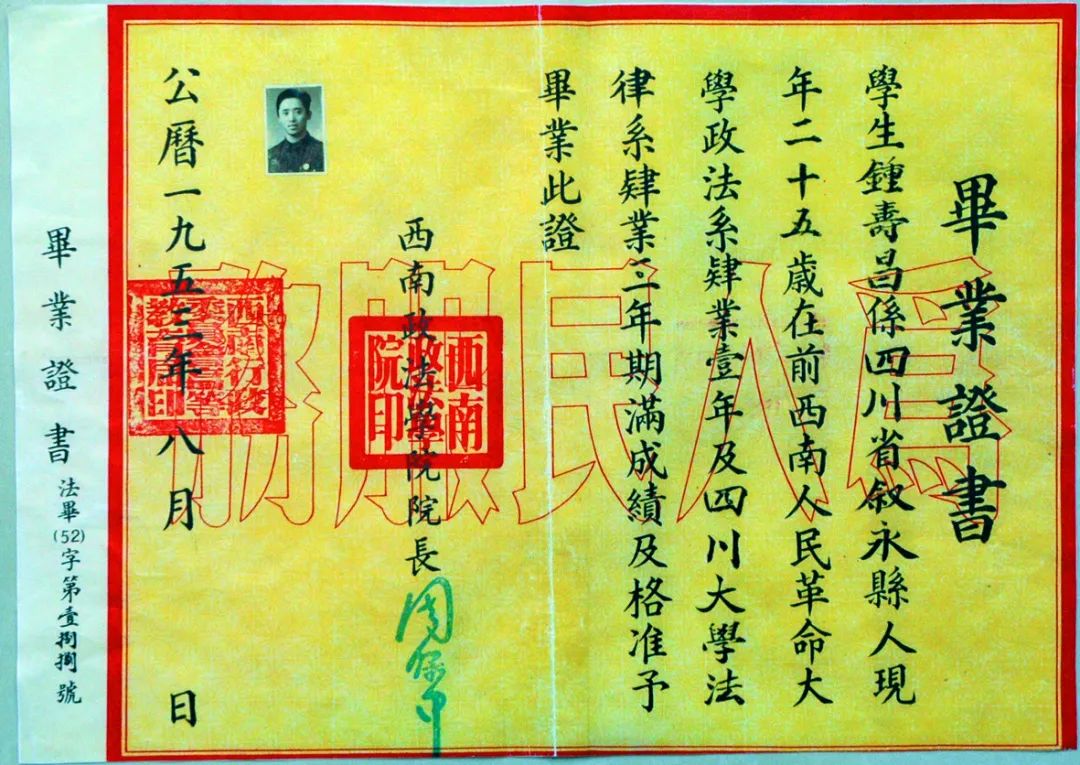 畢業證書
學生鍾壽昌係四川省叙永縣人現
年二十五歲在前西南人民革命大
學政法系肄業壹年及四川大學法
律系肄業三年期滿成績及格准予
畢業此證
爲人民服務
西南政法學院院長
周保中
西南政法學院印
公曆一九五三年八月 日
畢業證書 法畢(52)字第壹捌捌號